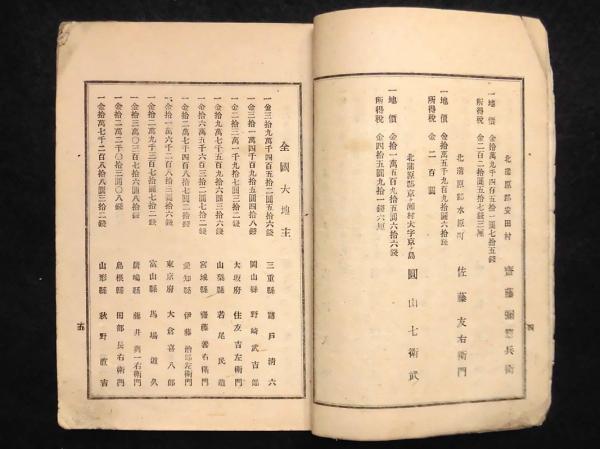 北蒲原郡安田村
齋藤彌惣兵衛
一地價 金拾萬九千四百五拾二圓七拾五錢
所得稅 金二百二拾四五拾七錢三厘
北蒲原郡水原町
佐藤友右衛門
一地價 金拾萬五千九百九拾圓六拾錢
所得稅 金二百圓
北蒲原郡京ヶ瀬村大字京ヶ島
圓山七衛武
一地價 金拾一萬五百九拾五圓六拾六錢
所得稅 金四拾五圓九拾一錢六厘
四
全國大地主
一金三拾九萬千四百五拾二圓五拾六錢 三重縣 諸戸清六
一金三拾一萬四千百九拾五圓四拾八錢 岡山縣 野崎武吉郎
一金二拾三萬一千九拾七圓三拾二錢 大坂府 住友吉左衛門
一金拾九萬七千五百九拾九圓拾七錢 山梨縣 若尾民造
一金拾六萬五千六百三拾二圓七拾二錢 宮城縣 齋藤善右衛門
一金拾四萬 愛知縣 伊藤治郎左衛門
一金拾萬六千二百八拾三圓拾六錢 東京府 大倉喜八郎
一金拾二萬九千三百七拾六圓拾二錢 富山縣 馬場道久
一金拾三萬〇三百七拾六圓八拾錢 藤井與一右衛門
一金拾二萬二千〇拾三圓〇八錢 島根縣 田部長右衛門
一金拾萬七千二百八拾八圓三拾二錢 山形縣 秋野直吉
五